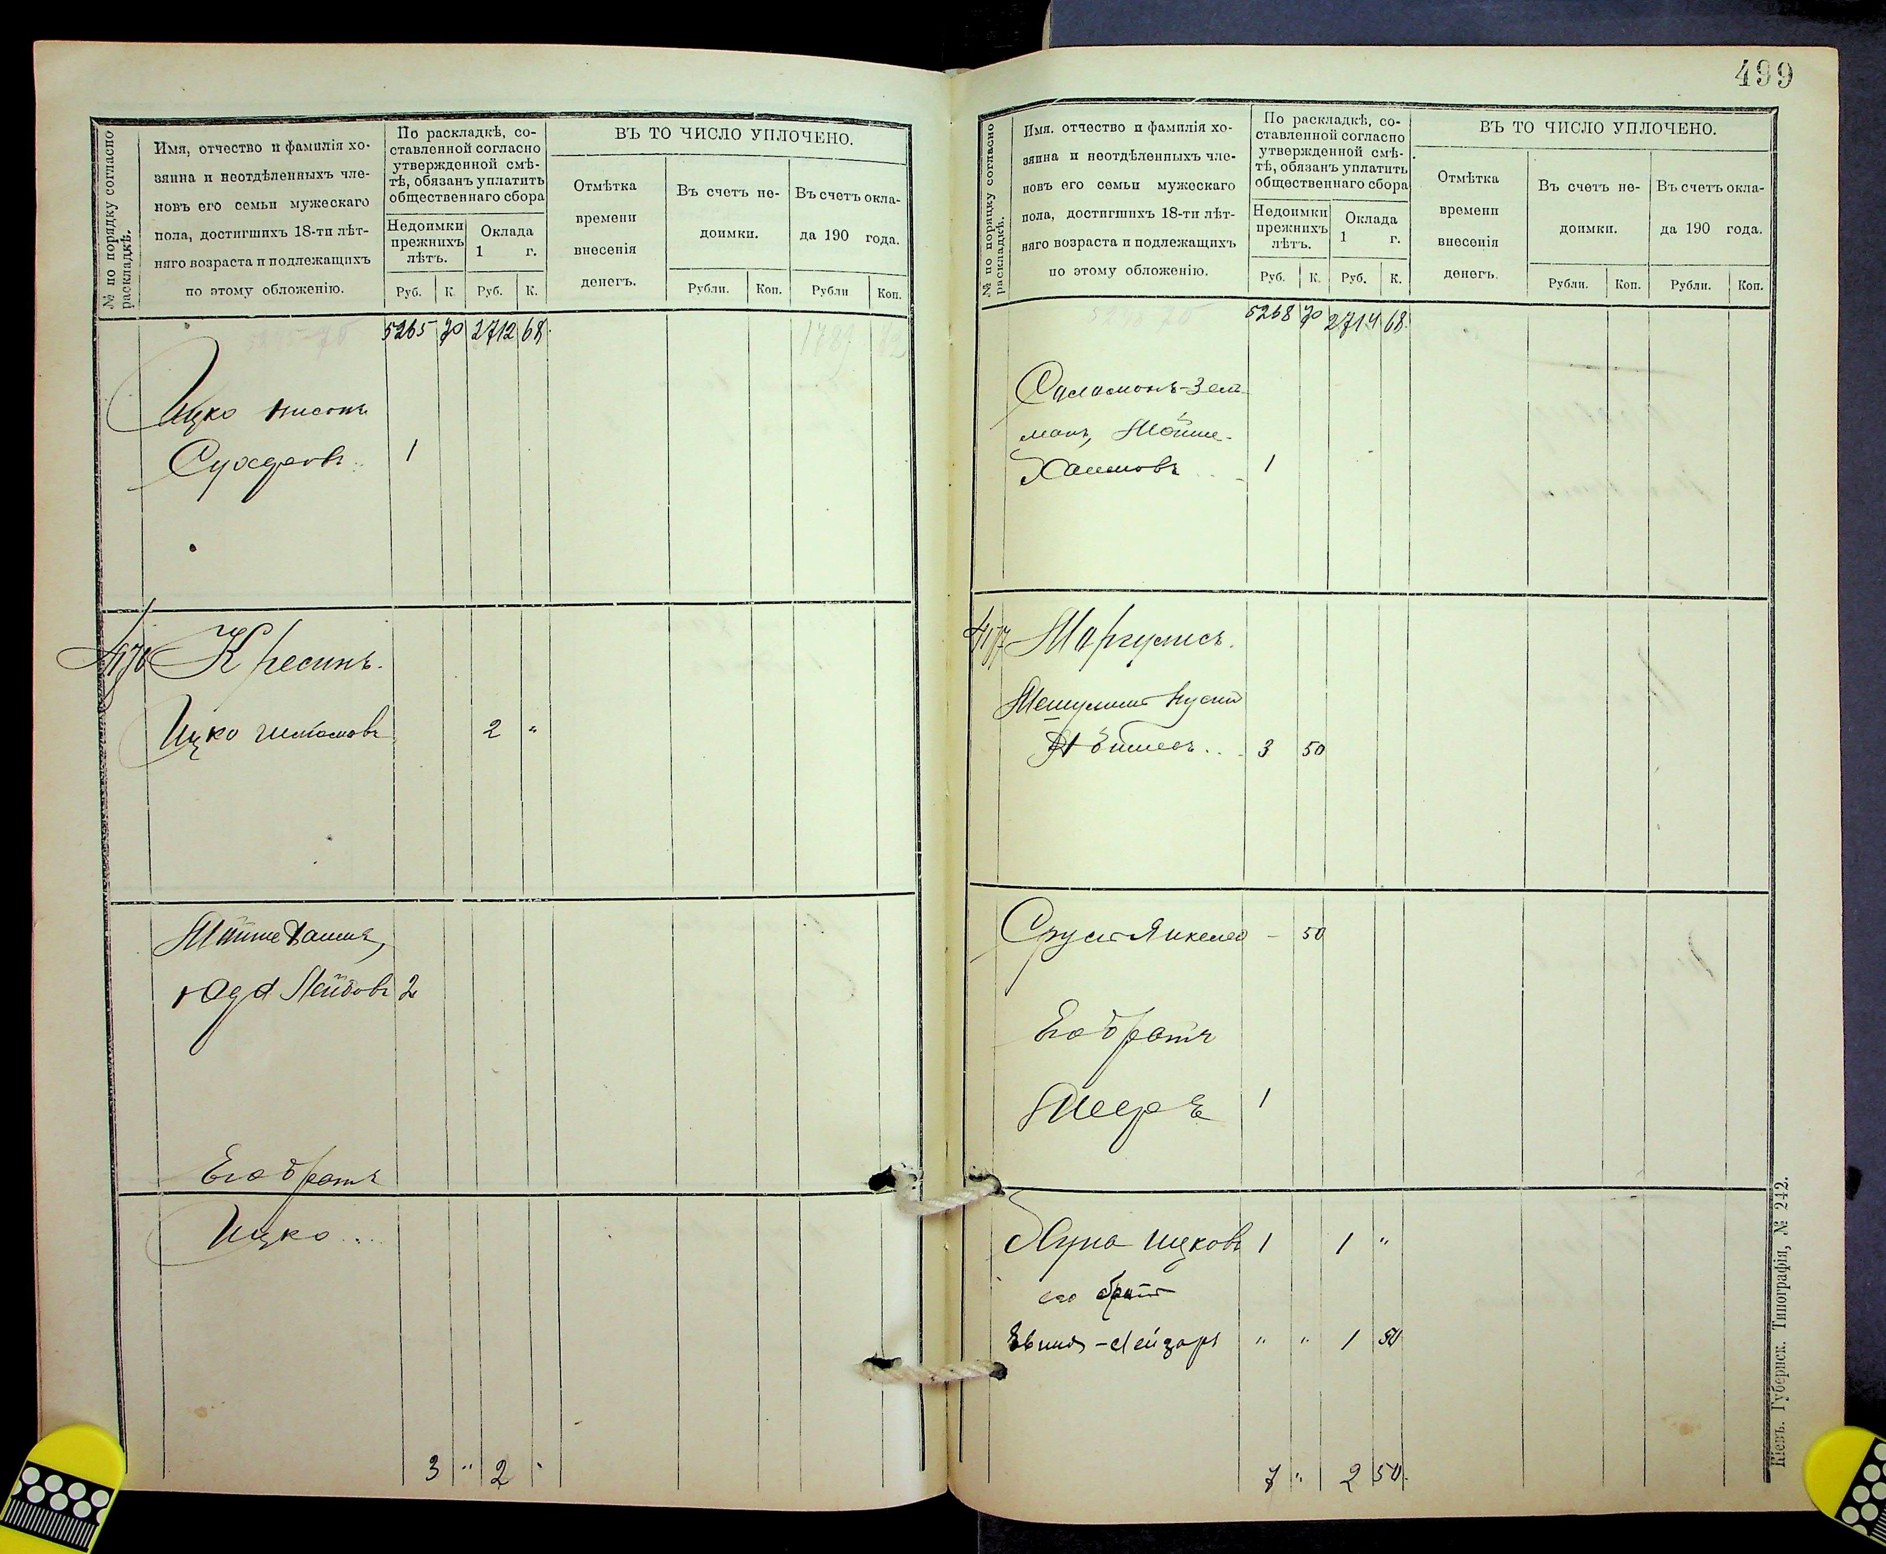 499
№ по порядку согласно раскладкѣ.
Имя, отчество и фамилія хо-
зяина и неотдѣленныхъ чле-
новъ его семьи мужескаго
пола, достигшихъ 18-ти лѣт-
няго возраста и подлежащихъ
по этому обложенію.
По раскладкѣ, со-
ставленной согласно
утвержденной смѣ-
тѣ, обязанъ уплатить
общественнаго сбора
Недоимки
прежнихъ
лѣтъ.
Оклада
1 г.
Руб. К. Руб. К.
ВЪ ТО ЧИСЛО УПЛОЧЕНО.
Отмѣтка
времени
внесенія
денегъ.
Въ счетъ не-
доимки.
Рубли. Коп.
Въ счетъ окла-
да 190 года.
Рубли Коп.
5265 70 2712 68
Ицко
1
Кресинъ.
Ицко 2 "
Мойше
Лейбовъ 2
Его братъ
Ицко ...
3 " 2 "
№ по порядку согласно раскладкѣ.
Имя, отчество и фамилія хо-
зяина и неотдѣленныхъ чле-
новъ его семьи мужескаго
пола, достигшихъ 18-ти лѣт-
няго возраста и подлежащихъ
по этому обложенію.
По раскладкѣ, со-
ставленной согласно
утвержденной смѣ-
тѣ, обязанъ уплатить
общественнаго сбора
Недоимки
прежнихъ
лѣтъ.
Оклада
1 г.
Руб. К. Руб. К.
ВЪ ТО ЧИСЛО УПЛОЧЕНО.
Отмѣтка
времени
внесенія
денегъ.
Въ счетъ не-
доимки.
Рубли. Коп.
Въ счетъ окла-
да 190 года.
Рубли. Коп.
5268 70 2714 68
Соломонъ-Зел-
манъ, Мойше-
Хаимовъ 1
Маргулисъ.
3 50
Сруль Янкелев - 50
Его братъ
1
Ицковъ 1 1 "
его братъ
-Лейзоръ " " 1 50
7 " 2 50
Кіевъ. Губернск. Типографія, № 242.